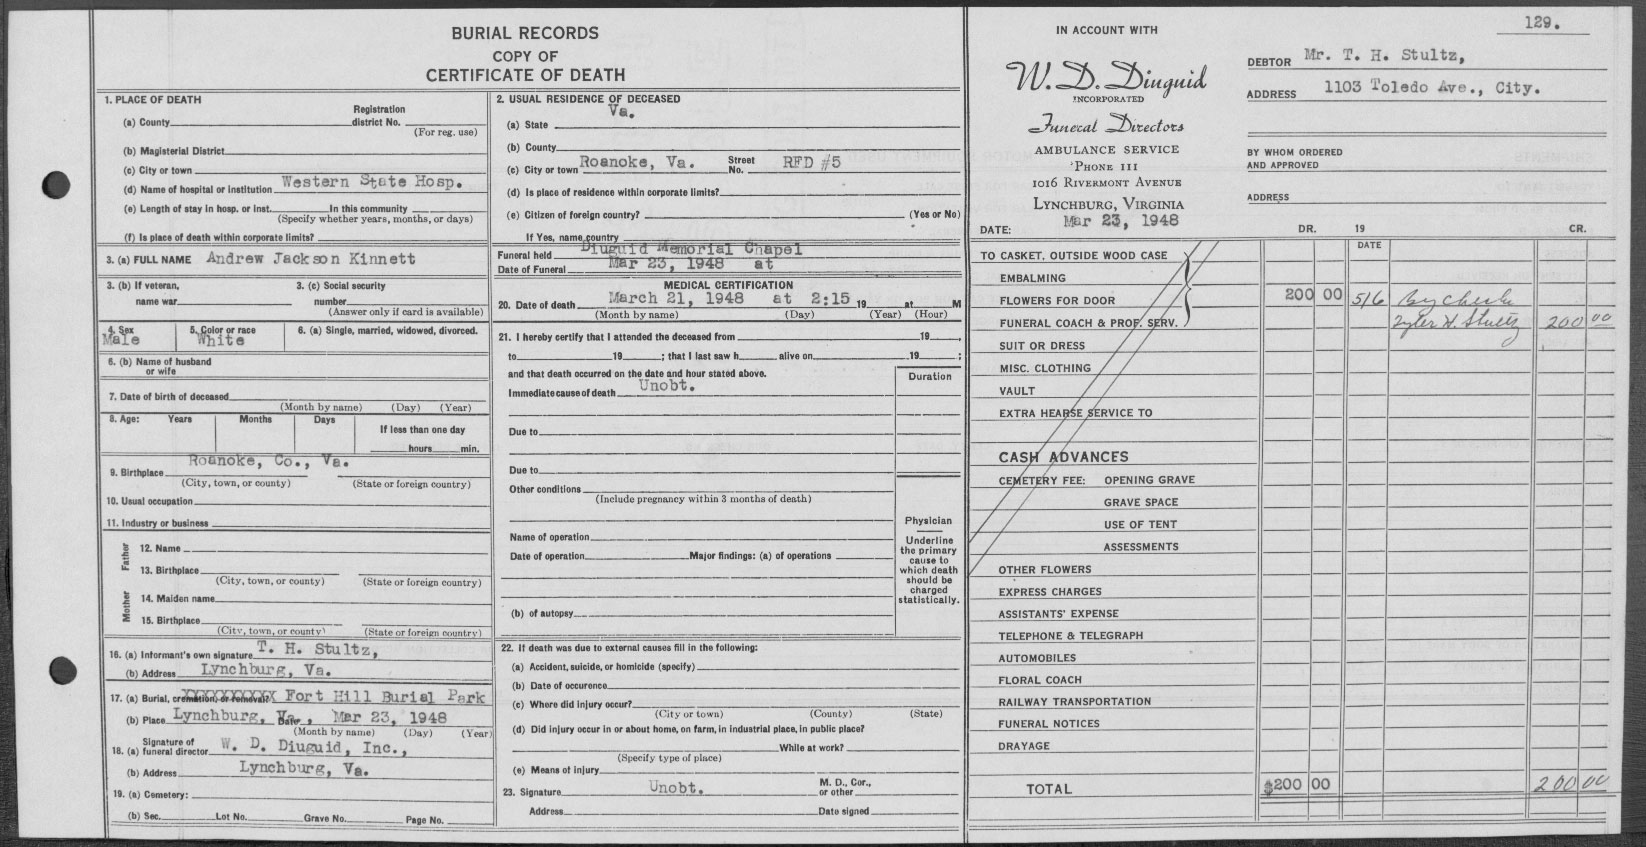 BURIAL RECORDS
COPY OF
CERTIFICATE OF DEATH
1. PLACE OF DEATH
Registration
(a) County district No.
(For reg. use)
(b) Magisterial District
(c) City or town
(d) Name of hospital or institution Western State Hosp.
(e) Length of stay in hosp. or inst. In this community
(Specify whether years, months, or days)
(f) Is place of death within corporate limits?
3. (a) FULL NAME Andrew Jackson Kinnett
3. (b) If veteran, 3. (c) Social security
name war number
(Answer only if card is available)
4. Sex 5. Color or race 6. (a) Single, married, widowed, divorced.
Male White
6. (b) Name of husband
or wife
7. Date of birth of deceased
(Month by name) (Day) (Year)
8. Age: Years Months Days
If less than one day
hours min.
Roanoke, Co., Va.
9. Birthplace
(City, town, or county) (State or foreign country)
10. Usual occupation
11. Industry or business
Father
12. Name
13. Birthplace
(City, town, or county) (State or foreign country)
Mother
14. Maiden name
15. Birthplace
(City, town, or county) (State or foreign country)
16. (a) Informant's own signature T. H. Stultz,
(b) Address Lynchburg, Va.
17. (a) Burial, cremation, or removal? XXXXXXXXXX Fort Hill Burial Park
(b) Place Lynchburg, Va., Date Mar 23, 1948
(Month by name) (Day) (Year)
18. (a) Signature of funeral director W. D. Diuguid, Inc.,
(b) Address Lynchburg, Va.
19. (a) Cemetery:
(b) Sec. Lot No. Grave No. Page No.
2. USUAL RESIDENCE OF DECEASED
(a) State Va.
(b) County
(c) City or town Roanoke, Va. Street No. RFD #5
(d) Is place of residence within corporate limits?
(e) Citizen of foreign country? (Yes or No)
If Yes, name country
Funeral held Diuguid Memorial Chapel
Date of Funeral Mar 23, 1948 at
MEDICAL CERTIFICATION
20. Date of death March 21, 1948 at 2:15 19 at M
(Month by name) (Day) (Year) (Hour)
21. I hereby certify that I attended the deceased from 19
to 19 ; that I last saw h alive on 19 ;
and that death occurred on the date and hour stated above.
Duration
Immediate cause of death Unobt.
Due to
Due to
Other conditions
(Include pregnancy within 3 months of death)
Name of operation
Date of operation Major findings: (a) of operations
(b) of autopsy
Physician
Underline
the primary
cause to
which death
should be
charged
statistically.
22. If death was due to external causes fill in the following:
(a) Accident, suicide, or homicide (specify)
(b) Date of occurence
(c) Where did injury occur?
(City or town) (County) (State)
(d) Did injury occur in or about home, on farm, in industrial place, in public place?
While at work?
(Specify type of place)
(e) Means of injury
23. Signature Unobt. M. D., Cor., or other
Address Date signed
129.
IN ACCOUNT WITH
W. D. Diuguid
INCORPORATED
Funeral Directors
AMBULANCE SERVICE
'PHONE 111
1016 RIVERMONT AVENUE
LYNCHBURG, VIRGINIA
DATE: Mar 23, 1948
DEBTOR Mr. T. H. Stultz,
ADDRESS 1103 Toledo Ave., City.
BY WHOM ORDERED
AND APPROVED
ADDRESS
DR. 19 CR.
DATE
TO CASKET, OUTSIDE WOOD CASE
EMBALMING
FLOWERS FOR DOOR 200 00 5/6 By Check
FUNERAL COACH & PROF. SERV. Tyler H. Stultz 200 00
SUIT OR DRESS
MISC. CLOTHING
VAULT
EXTRA HEARSE SERVICE TO
CASH ADVANCES
CEMETERY FEE: OPENING GRAVE
GRAVE SPACE
USE OF TENT
ASSESSMENTS
OTHER FLOWERS
EXPRESS CHARGES
ASSISTANTS' EXPENSE
TELEPHONE & TELEGRAPH
AUTOMOBILES
FLORAL COACH
RAILWAY TRANSPORTATION
FUNERAL NOTICES
DRAYAGE
TOTAL $200 00 200 00